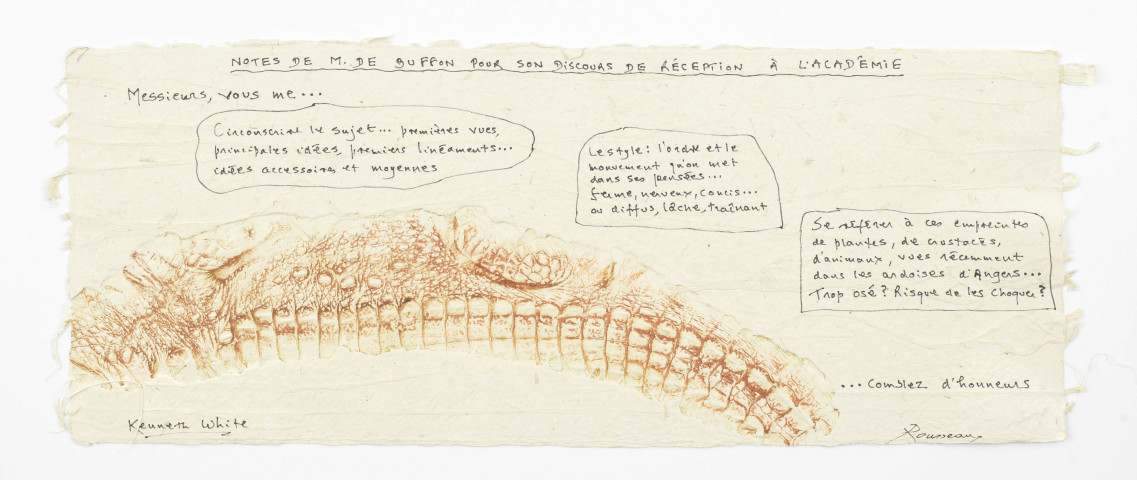 NOTES DE M. DE BUFFON POUR SON DISCOURS DE RÉCEPTION À L'ACADÉMIE
Messieurs, vous me...
Circonscrire le sujet... premières vues,
principales idées, premiers linéaments...
idées accessoires et moyennes
Le style : l'ordre et le
mouvement qu'on met
dans ses pensées...
ferme, nerveux, concis...
ou diffus, lâche, traînant
Se référer à ces empreintes
de plantes, de crustacés,
d'animaux, vues récemment
dans les ardoises d'Angers...
Trop osé ? Risque de les choquer ?
...comblez d'honneurs
Kenneth White
Rousseau